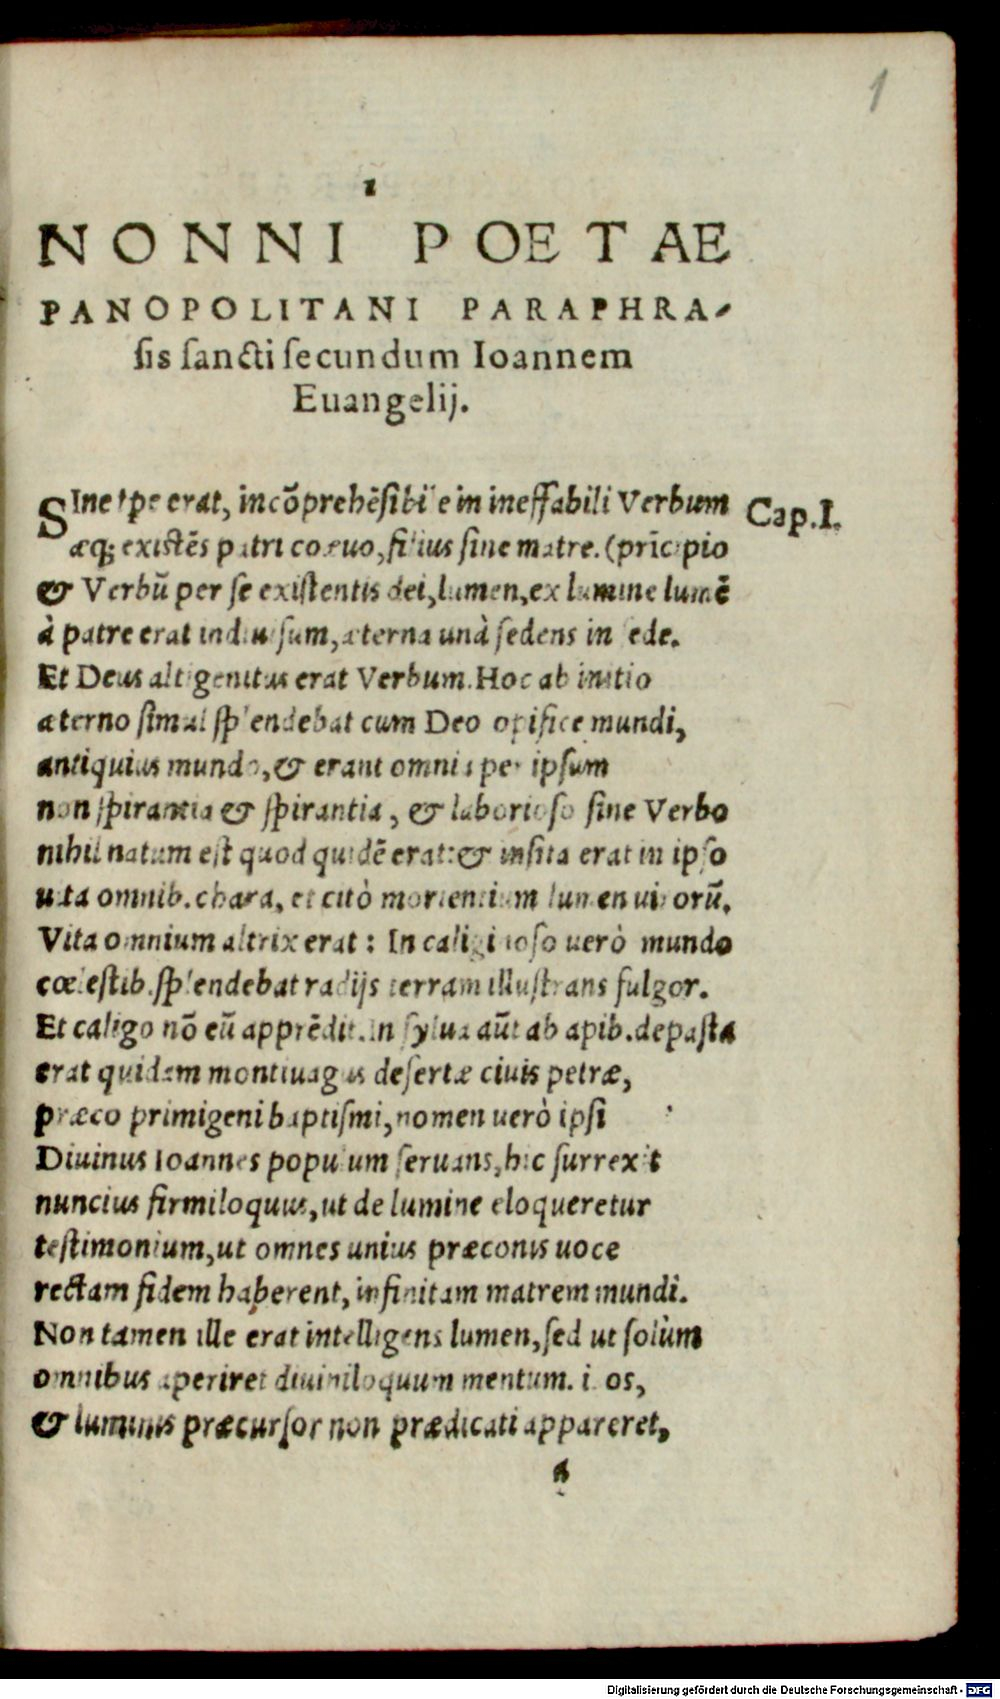 1
1
NONNI POETAE
PANOPOLITANI PARAPHRA-
sis sancti secundum Ioannem
Euangelij.
SIne tpe erat, incõprehẽsibile in ineffabili Verbum
Cap.I.
æq; existẽs patri coæuo, filius sine matre. (prĩcipio
& Verbũ per se existentis dei, lumen, ex lumine lumẽ
à patre erat indiuisum, æterna unà sedens in sede.
Et Deus altigenitus erat Verbum. Hoc ab initio
æterno simul splendebat cum Deo opifice mundi,
antiquius mundo, & erant omnia per ipsum
non spirantia & spirantia, & laborioso sine Verbo
nihil natum est quod quidẽ erat: & insita erat in ipso
uita omnib. chara, et citò morientium lumen uirorũ.
Vita omnium altrix erat: In caliginoso uerò mundo
cœlestib. splendebat radijs terram illustrans fulgor.
Et caligo nõ eũ apprẽdit. In sylua aũt ab apib. depasta
erat quidam montiuagus desertæ ciuis petræ,
præco primigeni baptismi, nomen uerò ipsi
Diuinus Ioannes populum seruans, hic surrexit
nuncius firmiloquus, ut de lumine eloqueretur
testimonium, ut omnes unius præconis uoce
rectam fidem haberent, infinitam matrem mundi.
Non tamen ille erat intelligens lumen, sed ut solùm
omnibus aperiret diuiniloquum mentum. os,
& luminis præcursor non prædicati appareret,
Digitalisierung gefördert durch die Deutsche Forschungsgemeinschaft - DFG